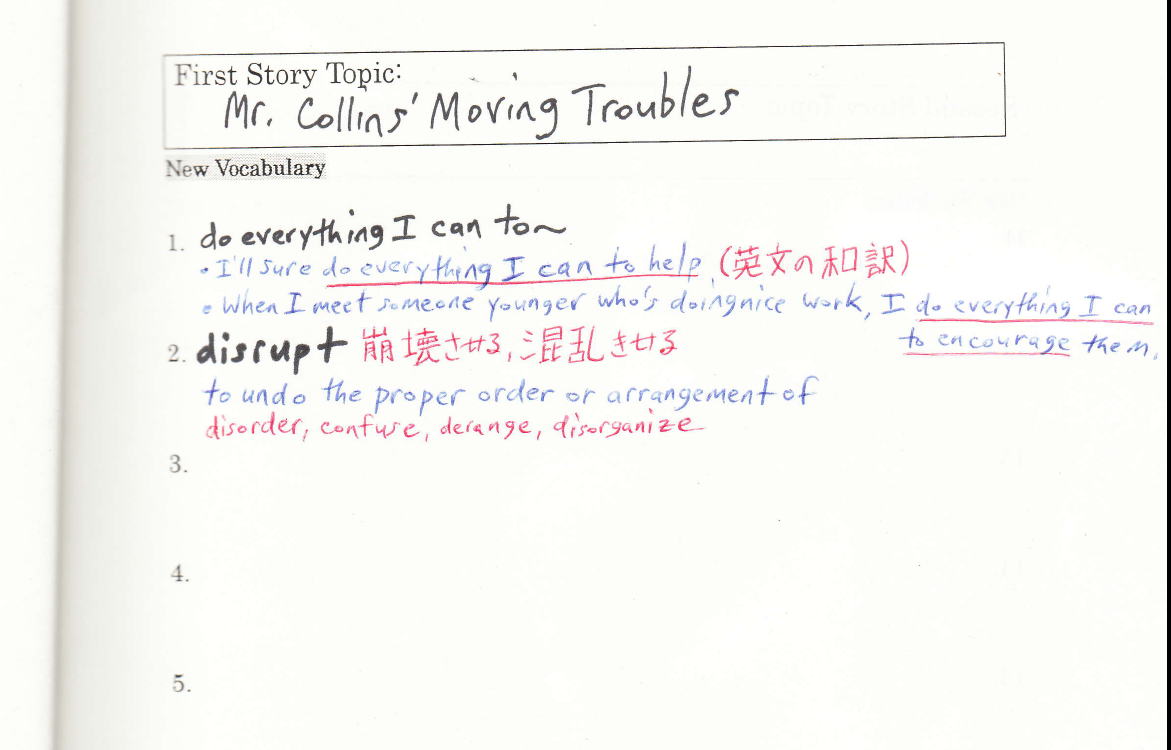 First Story Topic:
Mr. Collins' Moving Troubles
New Vocabulary
1. do everything I can to~
• I'll sure do everything I can to help (英文の和訳)
• When I meet someone younger who's doingnice work, I do everything I can
to encourage them.
2. disrupt 崩壊させる, 混乱させる
to undo the proper order or arrangement of
disorder, confuse, derange, disorganize
3.
4.
5.